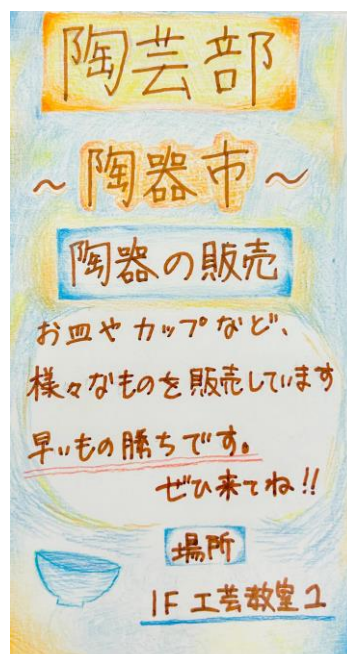 陶芸部
～陶器市～
陶器の販売
お皿やカップなど、
様々なものを販売しています
早いもの勝ちです。
ぜひ来てね!!
場所
1F 工芸教室1